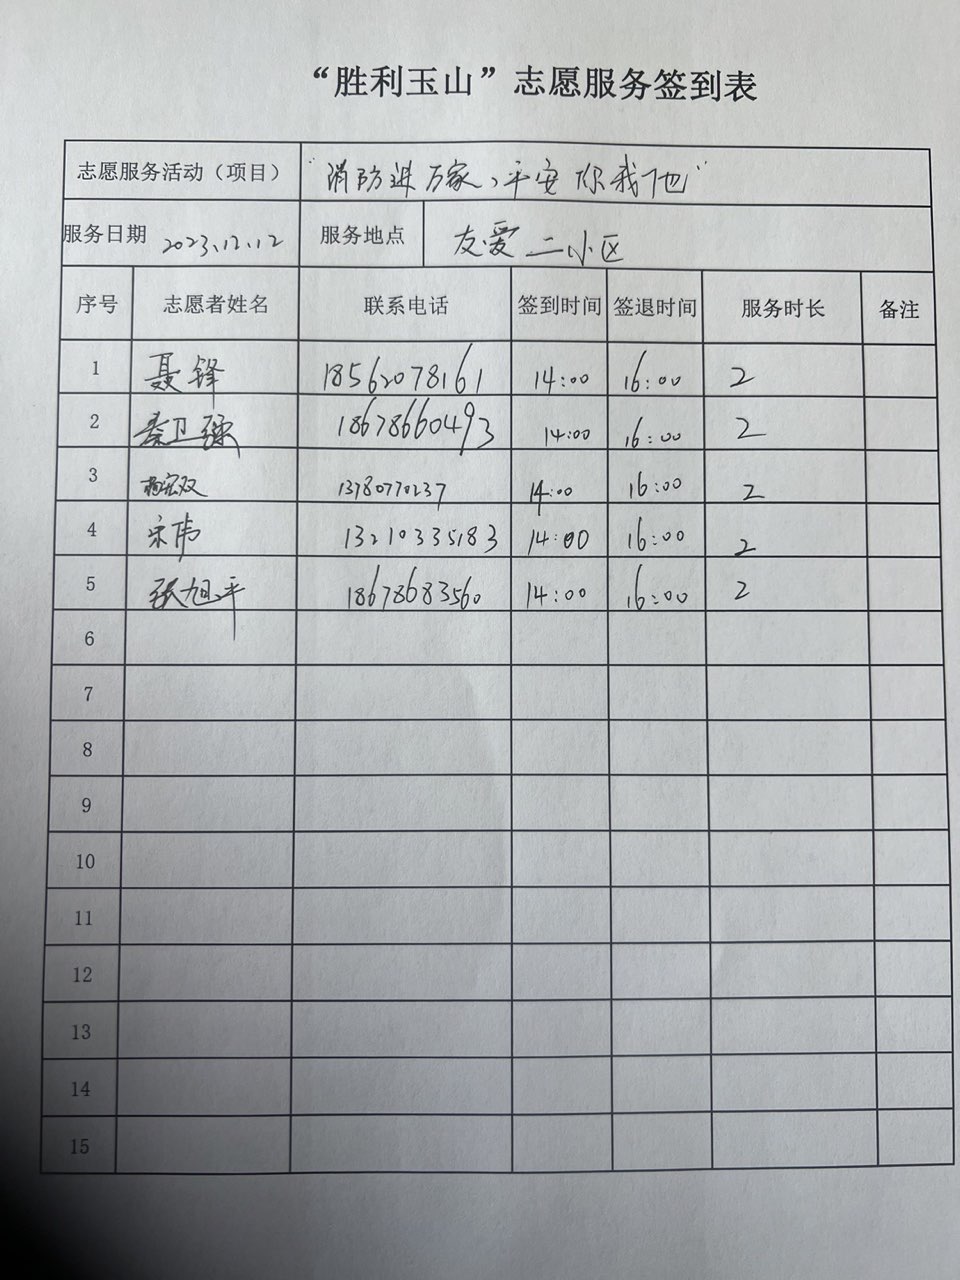 “胜利玉山”志愿服务签到表
志愿服务活动（项目） “消防进万家、平安你我他”
服务日期 2023.12.12 服务地点 友爱二小区
序号 志愿者姓名 联系电话 签到时间 签退时间 服务时长 备注
1 聂锋 18562078161 14:00 16:00 2
2 秦卫强 18678660493 14:00 16:00 2
3 杨宏双 13780770237 14:00 16:00 2
4 宋伟 13210335183 14:00 16:00 2
5 张旭平 18678683560 14:00 16:00 2
6
7
8
9
10
11
12
13
14
15